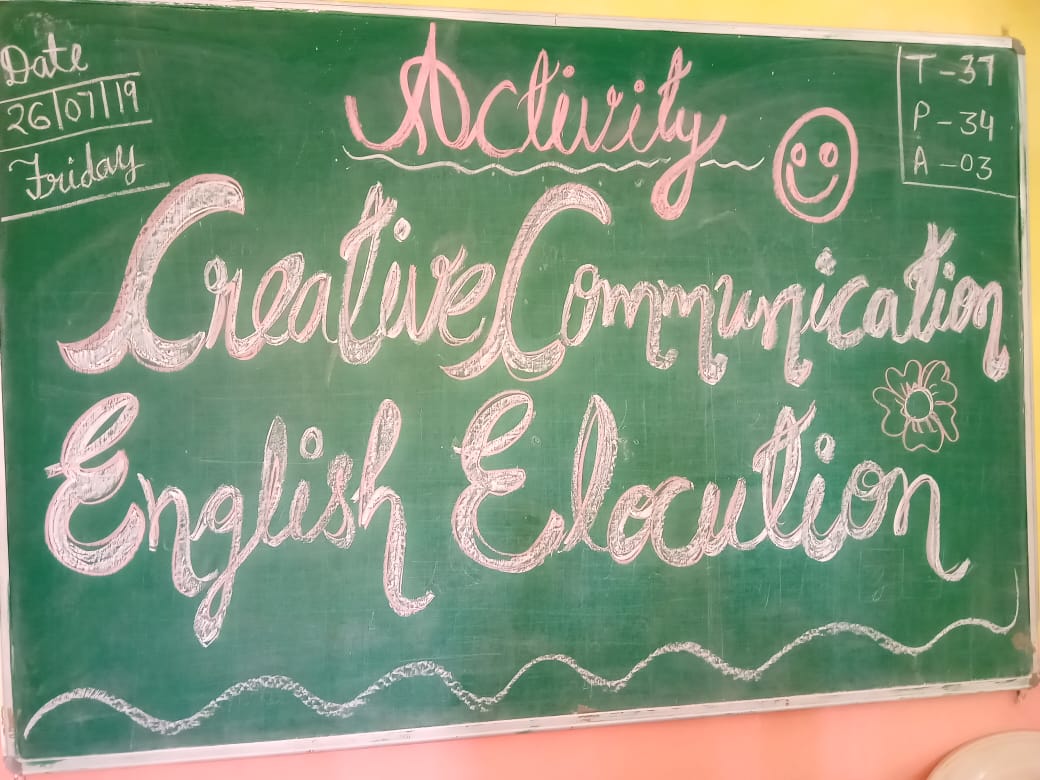 Date
26/07/19
Friday
Activity
T - 37
P - 34
A - 03
Creative Communication
English Elocution